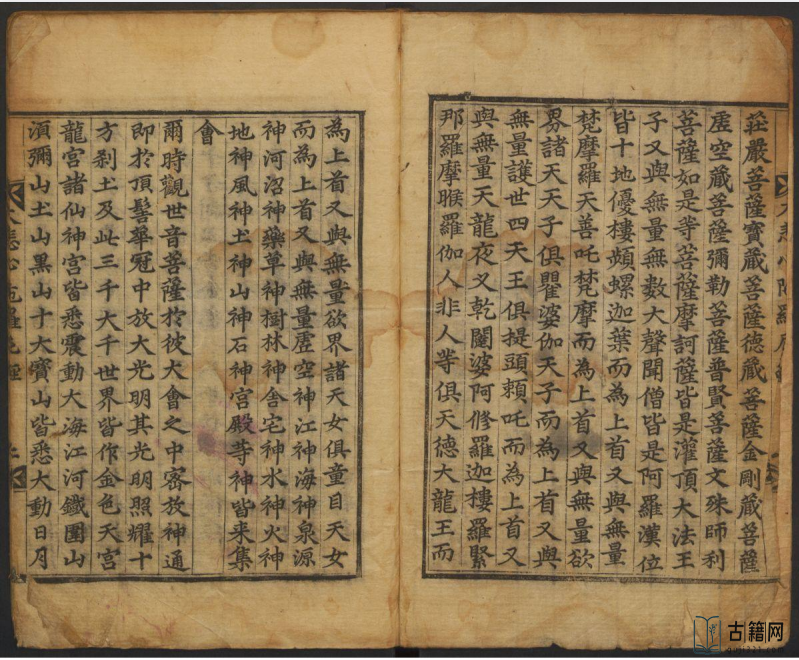 莊嚴菩薩寶藏菩薩德藏菩薩金剛藏菩薩
虛空藏菩薩彌勒菩薩普賢菩薩文殊師利
菩薩如是等菩薩摩訶薩皆是灌頂大法王
子又與無量無數大聲聞僧皆是阿羅漢位
皆十地優樓頻螺迦葉而為上首又與無量
梵摩羅天善吒梵摩而為上首又與無量欲
界諸天天子俱瞿婆伽天子而為上首又與
無量護世四天王俱提頭賴吒而為上首又
與無量天龍夜叉乾闥婆阿修羅迦樓羅緊
那羅摩睺羅伽人非人等俱天德大龍王而
為上首又與無量欲界諸天女俱童目天女
而為上首又與無量虛空神江神海神泉源
神河沼神藥草神樹林神舍宅神水神火神
地神風神土神山神石神宮殿等神皆來集
會
爾時觀世音菩薩於彼大會之中密放神通
即於頂髻華冠中放大光明其光明照耀十
方剎土及此三千大千世界皆作金色天宮
龍宮諸仙神宮皆悉震動大海江河鐵圍山
須彌山土山黑山十大寶山皆悉大動日月
大悲心陀羅尼經
上
古籍网